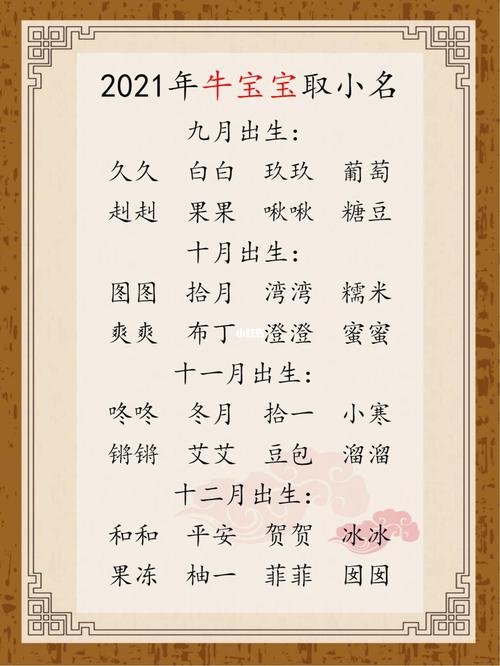 2021年牛宝宝取小名
九月出生：
久久 白白 玖玖 葡萄
赳赳 果果 啾啾 糖豆
十月出生：
图图 拾月 湾湾 糯米
爽爽 布丁 澄澄 蜜蜜
小红书
十一月出生：
咚咚 冬月 拾一 小寒
锵锵 艾艾 豆包 溜溜
十二月出生：
和和 平安 贺贺 冰冰
果冻 柚一 菲菲 囡囡